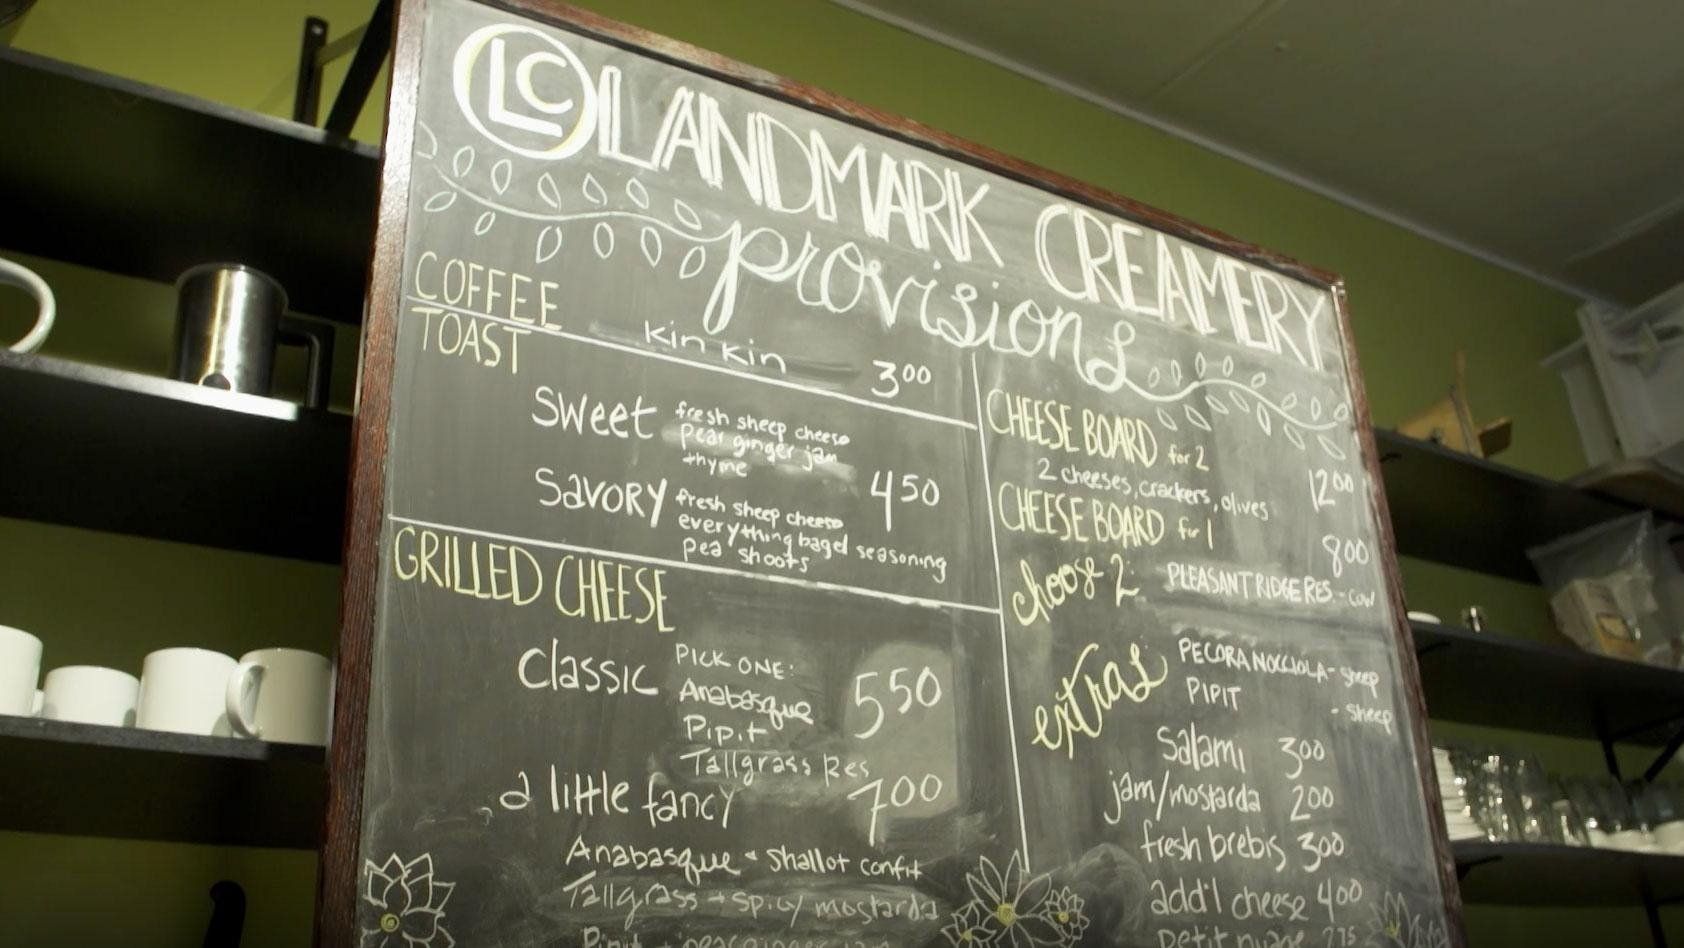 LC LANDMARK CREAMERY
provisions
COFFEE
kin kin 3.00
TOAST
Sweet fresh sheep cheese
pear ginger jam
thyme
4.50
Savory fresh sheep cheese
everything bagel seasoning
pea shoots
GRILLED CHEESE
Classic PICK ONE: 5.50
Anabasque
Pipit
Tallgrass Res
a little fancy 7.00
Anabasque + shallot confit
Tallgrass + spicy mostarda
Pipit + pear ginger jam
CHEESE BOARD for 2
2 cheeses, crackers, olives 12.00
CHEESE BOARD for 1 8.00
choose 2: PLEASANT RIDGE RES. - cow
PECORA NOCCIOLA - sheep
PIPIT - sheep
extras
Salami 3.00
jam/mostarda 2.00
fresh brebis 3.00
add'l cheese 4.00
petit nuage 2.75